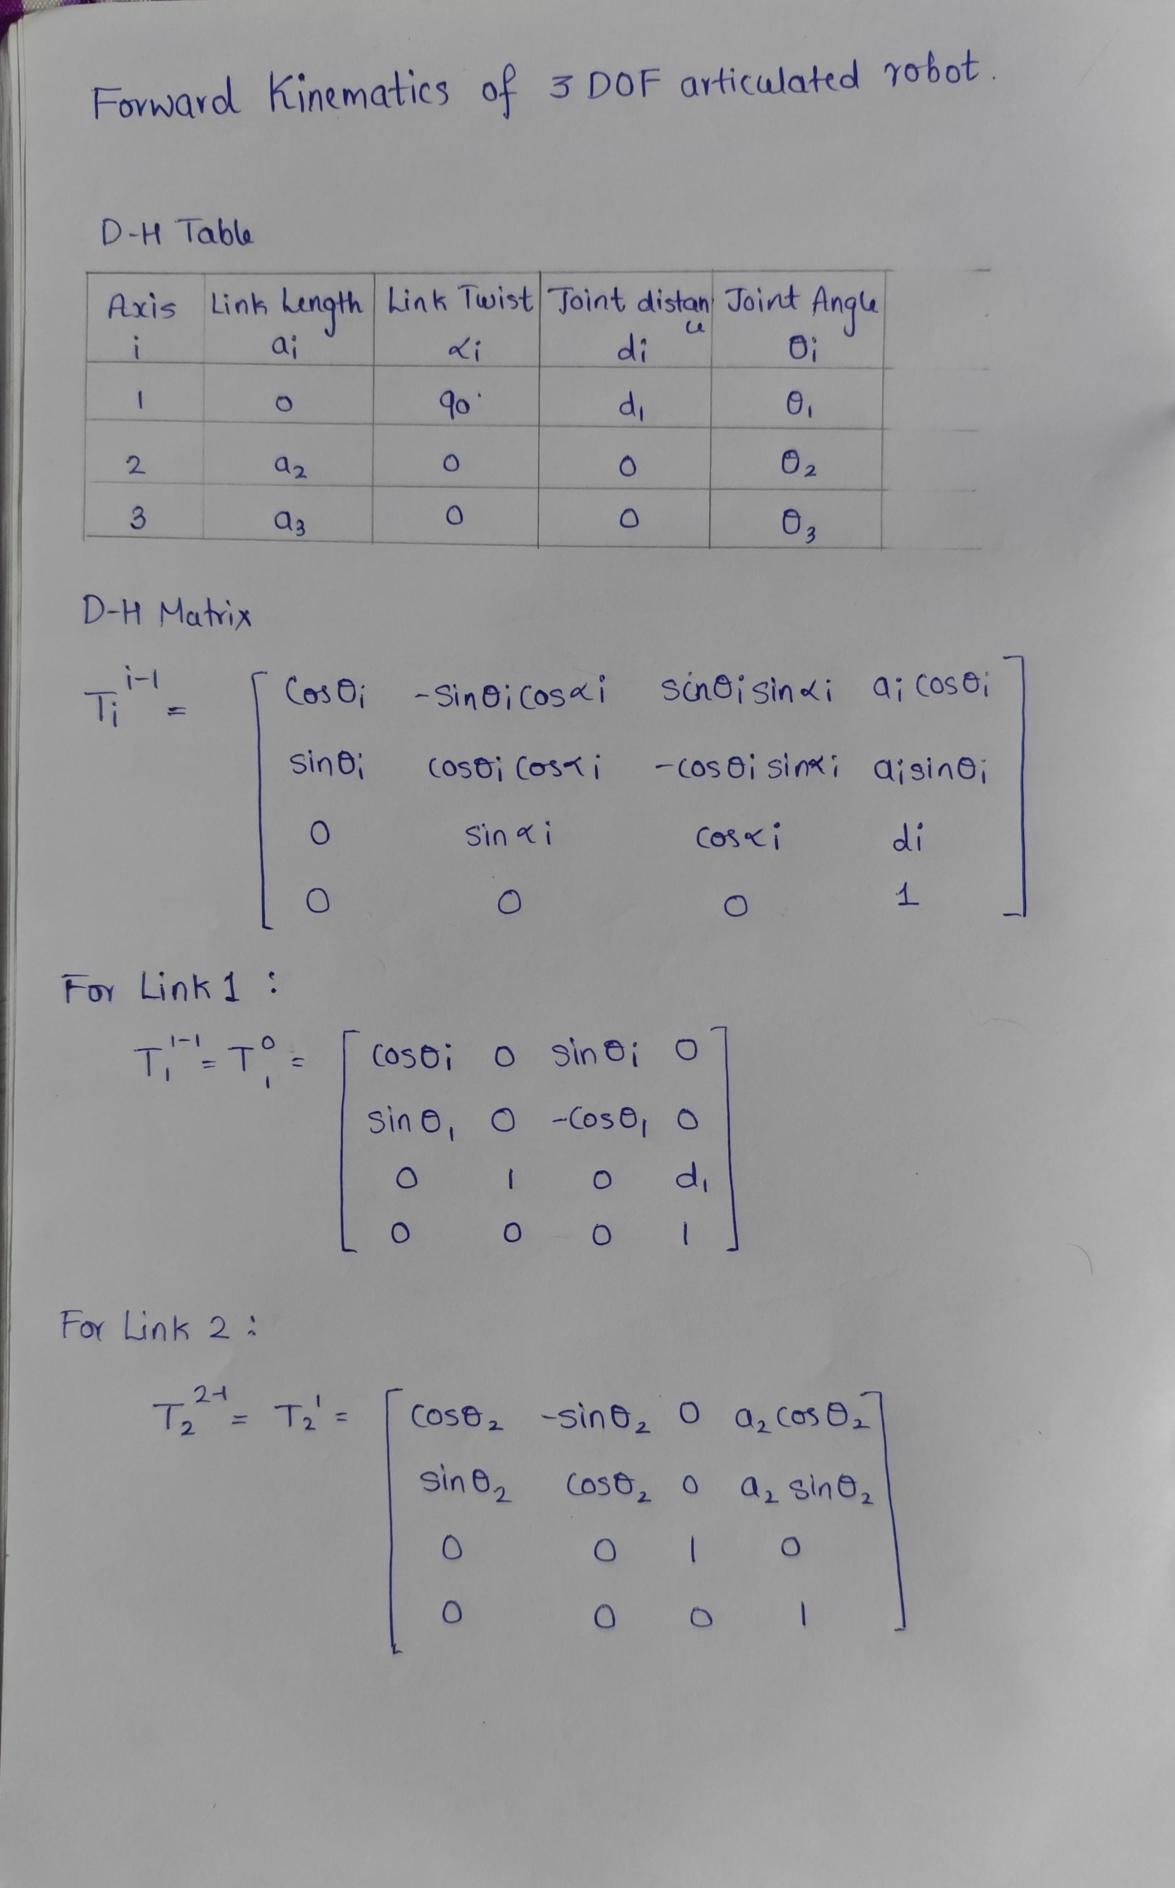 Forward Kinematics of 3 DOF articulated robot.
D-H Table
Axis i | Link Length ai | Link Twist αi | Joint distance di | Joint Angle θi
1 | 0 | 90° | d₁ | θ₁
2 | a₂ | 0 | 0 | θ₂
3 | a₃ | 0 | 0 | θ₃
D-H Matrix
Tᵢ^(i-1) =
[ Cosθi -Sinθi Cosαi sinθi sinαi ai cosθi
sinθi cosθi Cosαi -cosθi sinαi ai sinθi
0 sinαi cosαi di
0 0 0 1 ]
For Link 1 :
T₁^(1-1) = T₁^0 =
[ cosθi 0 sinθi 0
sinθ₁ 0 -Cosθ₁ 0
0 1 0 d₁
0 0 0 1 ]
For Link 2 :
T₂^(2-1) = T₂^1 =
[ cosθ₂ -sinθ₂ 0 a₂ cosθ₂
sinθ₂ cosθ₂ 0 a₂ sinθ₂
0 0 1 0
0 0 0 1 ]